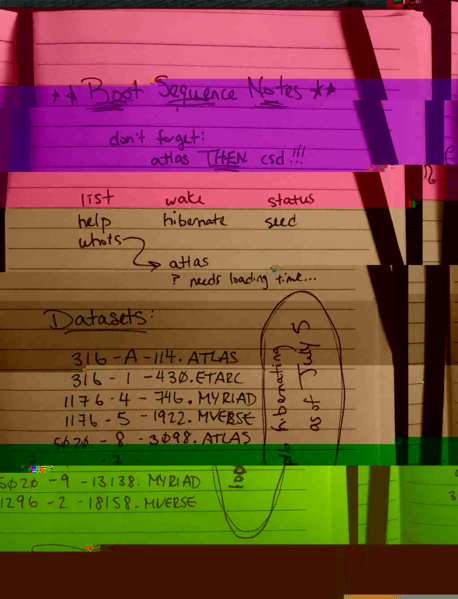 ** Boot Sequence Notes **
don't forget:
atlas THEN csd!!!
list wake status
help hibernate seed
whots
atlas
? needs loading time...
Datasets:
316-A-114.ATLAS
316-1-430.ETARC
1176-4-746.MYRIAD
1176-5-1922.MVERSE
5020-8-3098.ATLAS
5020-9-13138.MYRIAD
1296-2-18158.MVERSE
hibernating
as of July 5